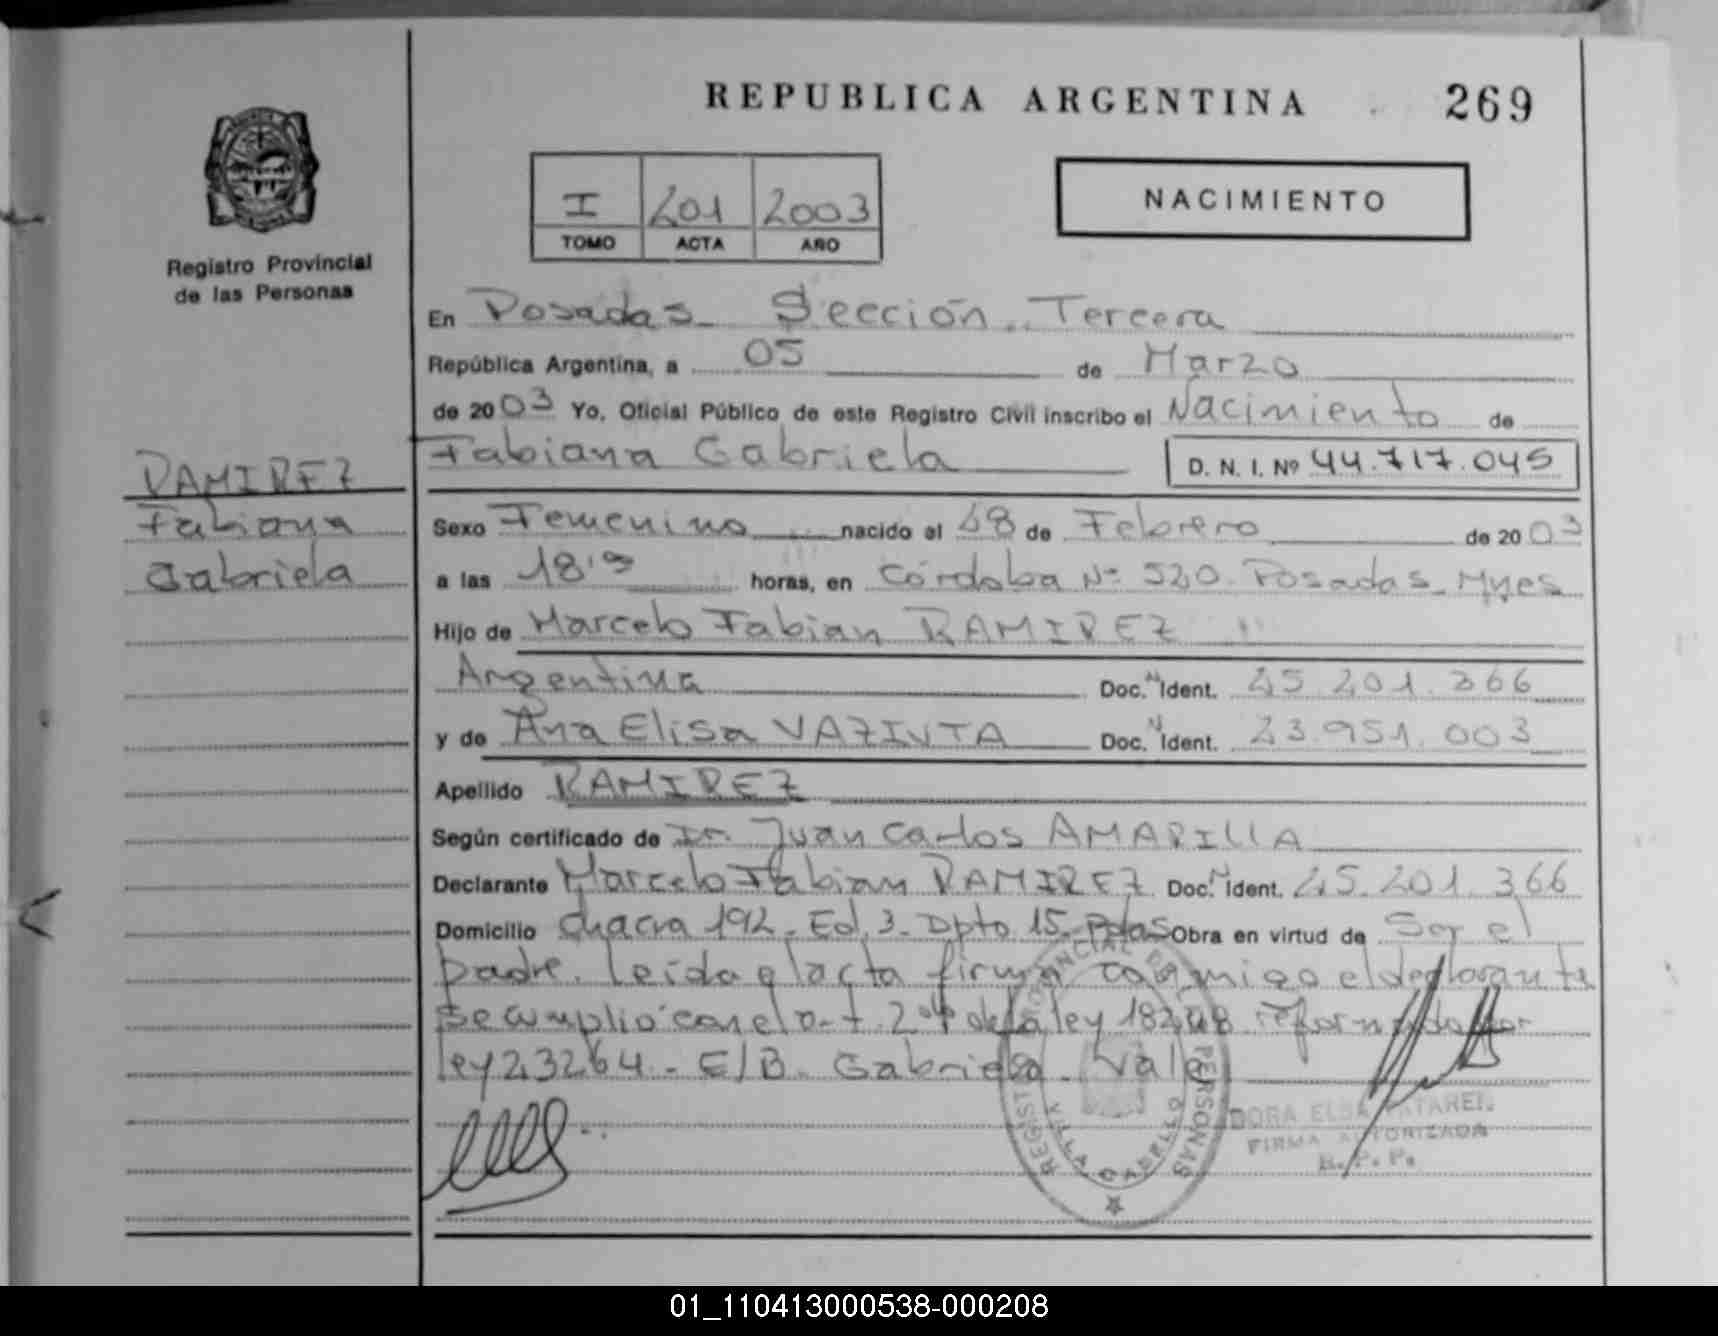 REPUBLICA ARGENTINA
269
I 201 2003
TOMO ACTA AÑO
NACIMIENTO
Registro Provincial
de las Personas
En Posadas Sección Tercera
República Argentina, a 05 de Marzo
de 2003 Yo, Oficial Público de este Registro Civil inscribo el Nacimiento de
Fabiana Gabriela D. N. I. Nº 44.717.045
RAMIREZ
Fabiana
Gabriela
Sexo Femenino nacido el 28 de Febrero de 2003
a las horas, en Córdoba Nº 520. Posadas Mnes
Hijo de Marcelo Fabian RAMIREZ
Argentina Doc. N Ident. 25.201.366
y de Ana Elisa Doc. N Ident. 23.951.003
Apellido RAMIREZ
Según certificado de Dr. Juan Carlos AMARILLA
Declarante Marcelo Fabian RAMIREZ Doc. N Ident. 25.201.366
Domicilio Chacra 192 - Ed. 3 - Dpto 15 - Pdas Obra en virtud de Ser el
padre. Leída el acta firma conmigo el declarante
se cumplió con el art. 2º de la ley 18248 reformada por
ley 23264 - E/B. Gabriela. Vale
REGISTRO PROVINCIAL DE LAS PERSONAS
VILLA CABELLO
DORA ELSA
FIRMA AUTORIZADA
R. P. P.
01_110413000538-000208